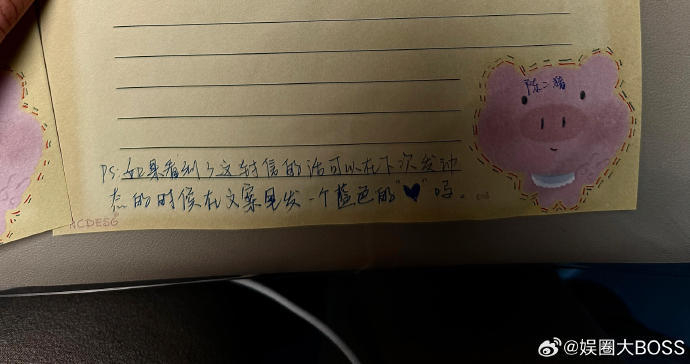 陈二猪
PS:如果看到了这封信的话可以在下次发动
态的时候在文案里发一个蓝色的"♥"吗。end
HCDESG
@娱圈大BOSS